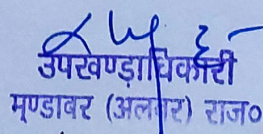 उपखण्ड़ाधिकारी
मुण्डावर (अलवर) राज०